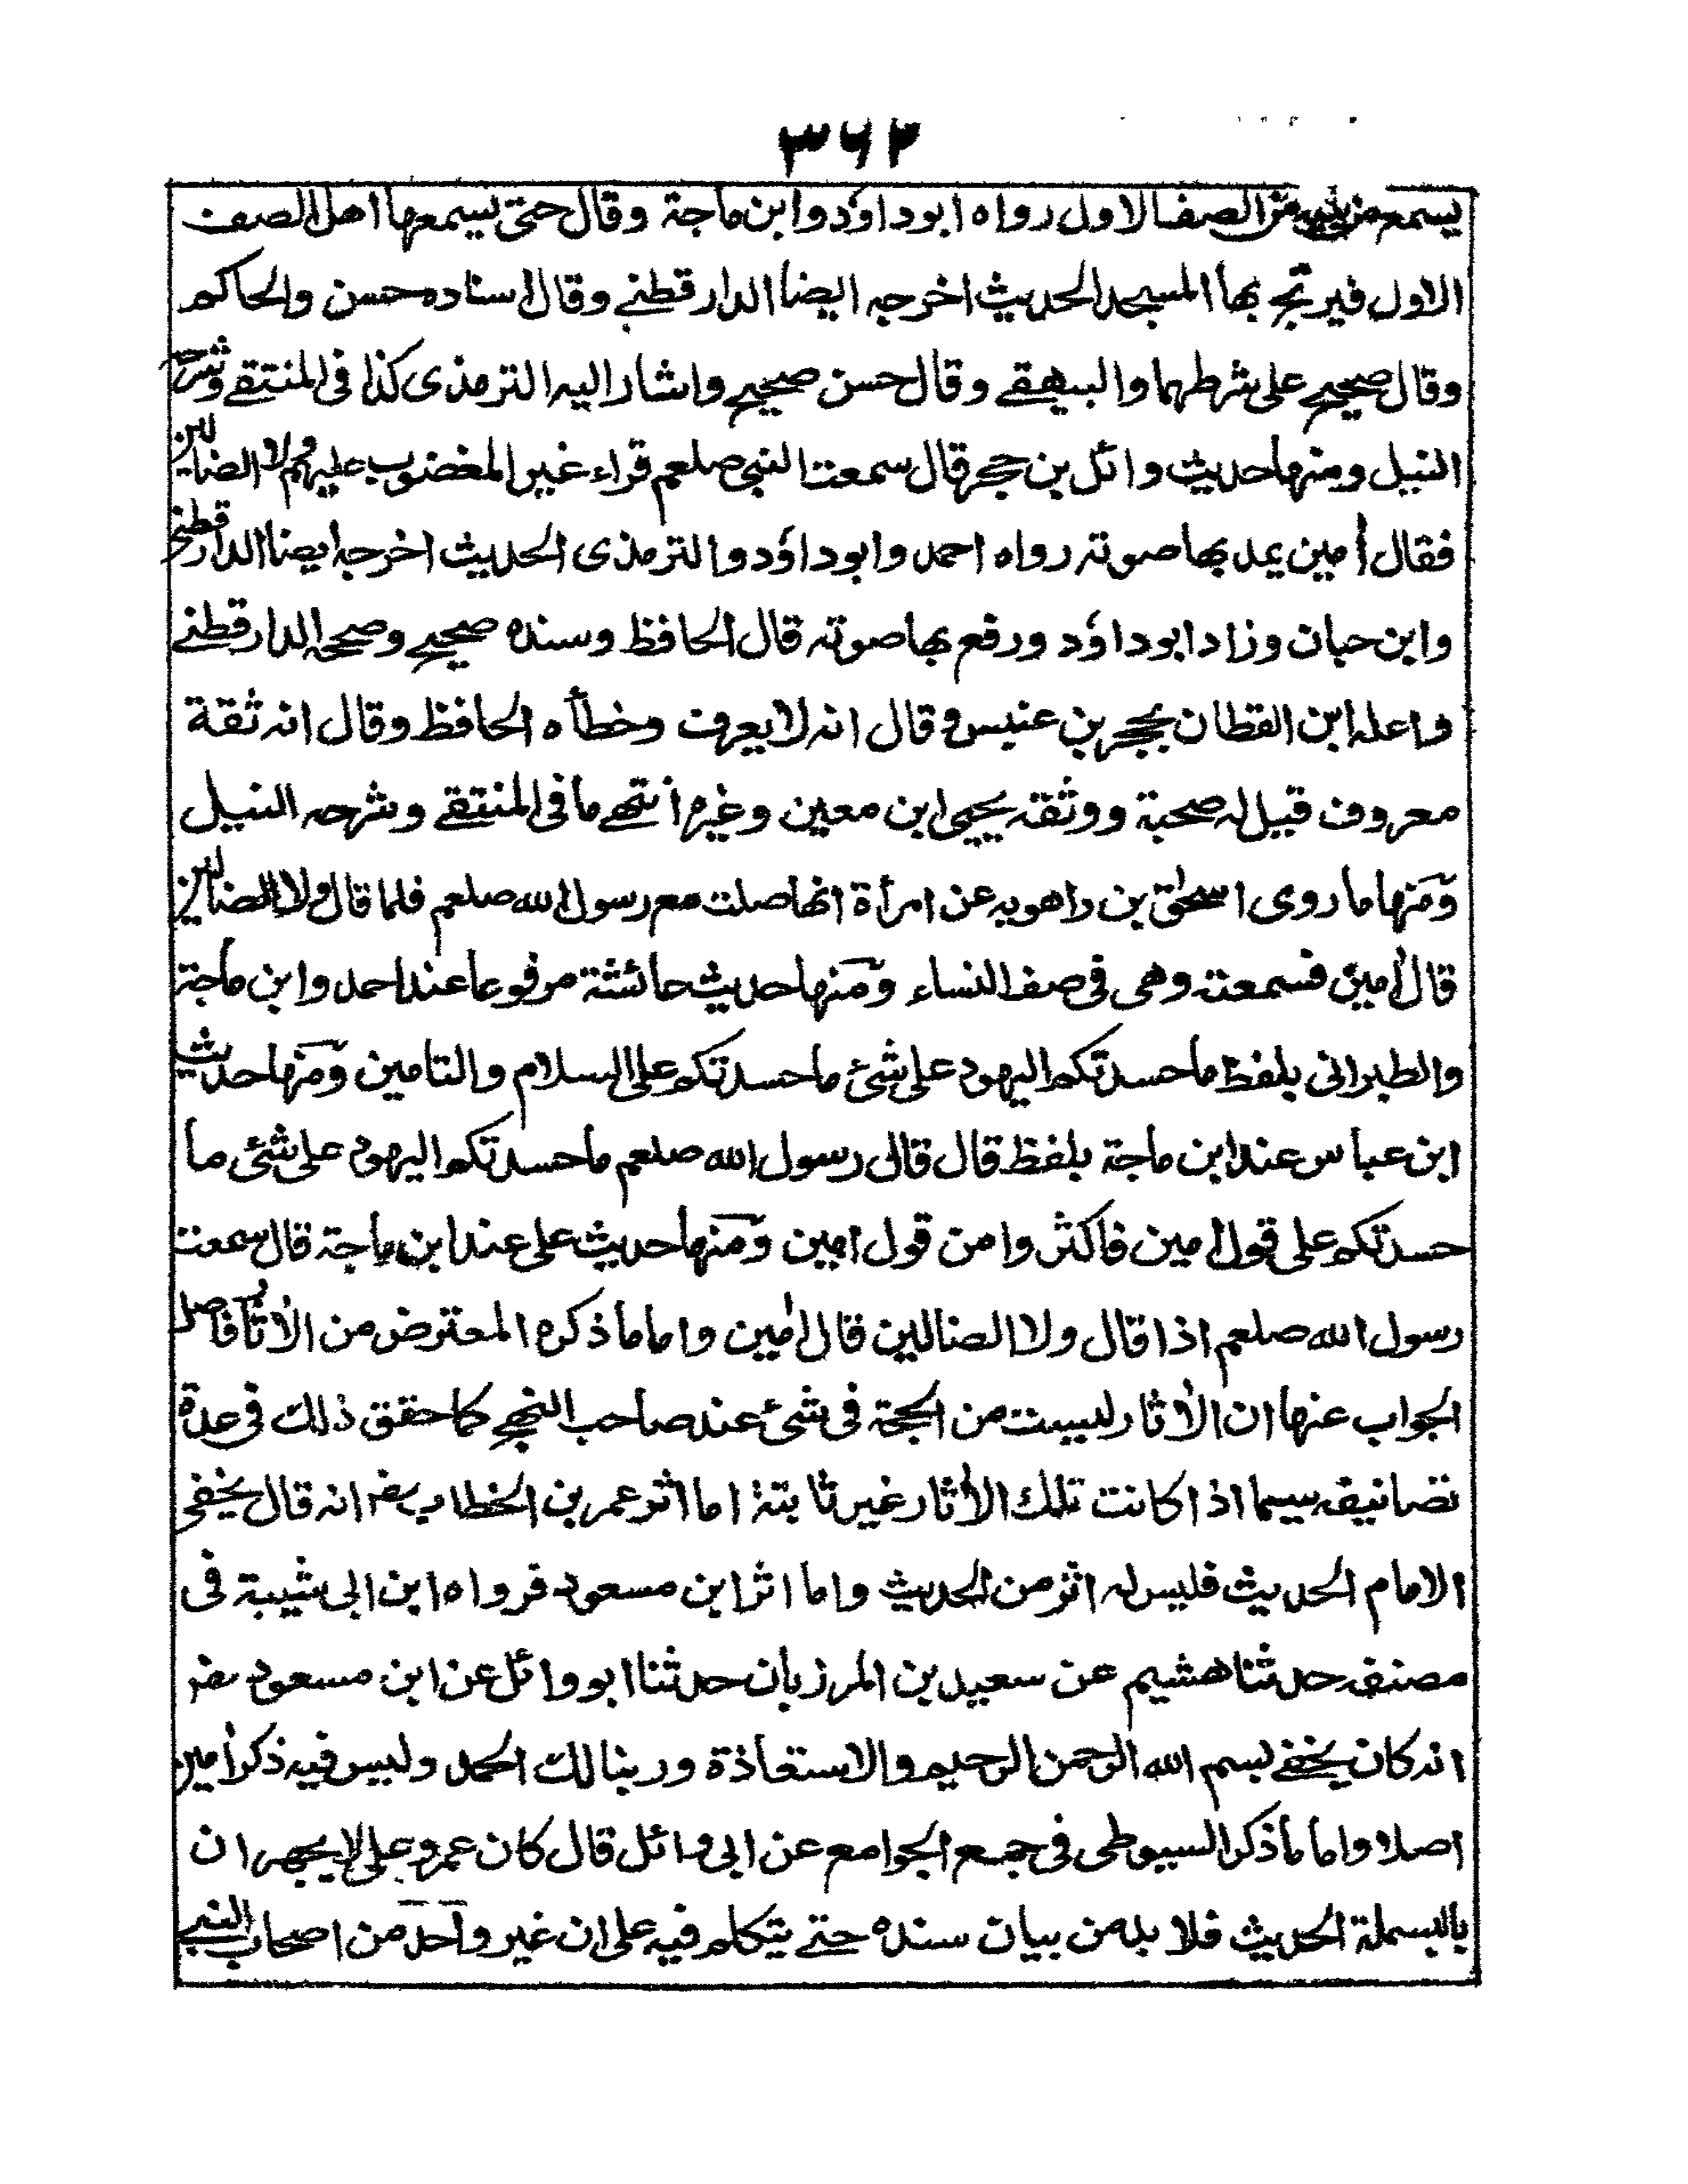 ۳۶۲
يسمع من يليه من الصف الاول رواه ابوداؤد وابن ماجة وقال حتى يسمعها اهل الصف
الاول فيرتج بها المسجد الحديث اخرجه ايضا الدارقطنے وقال اسناده حسن والحاكم
وقال صحيح على شرطهما والبيهقے وقال حسن صحيح واشار اليه الترمذى كذا فى المنتقے وشرحه
النيل ومنها حديث وائل بن حجر قال سمعت النبى صلعم قراء غير المغضوب عليهم ولا الضالين
فقال اٰمين يمد بها صوته رواه احمد وابوداؤد والترمذى الحديث اخرجه ايضا الدارقطنے
وابن حبان وزاد ابوداؤد ورفع بها صوته قال الحافظ وسنده صحيح وصححه الدارقطنے
واعله ابن القطان بحجر بن عنبس وقال انه لا يعرف وخطأه الحافظ وقال انه ثقة
معروف قيل له صحبة ووثقه يحيى ابن معين وغيره انتهے ما فى المنتقے وشرحه النيل
ومنها ما روى اسحٰق بن راهويه عن امرأة انها صلت مع رسول الله صلعم فلما قال ولا الضالين
قال اٰمين فسمعته وهى فى صف النساء ومنها حديث عائشة مرفوعا عند احمد وابن ماجة
والطبرانى بلفظ ما حسدتكم اليهود على شئ ما حسدتكم على السلام والتامين ومنها حديث
ابن عباس عند ابن ماجة بلفظ قال قال رسول الله صلعم ما حسدتكم اليهود على شئ ما
حسدتكم على قول اٰمين فاكثروا من قول امين ومنها حديث على عند ابن ماجة قال سمعت
رسول الله صلعم اذا قال ولا الضالين قال اٰمين واما ما ذكره المعترض من الاٰثار فاصل
الجواب عنها ان الاٰثار ليست من الحجة فى شئ عند صاحب النهج كما حقق ذلك فى عدة
تصانيفه سيما اذا كانت تلك الاٰثار غير ثابتة اما اثر عمر بن الخطاب رضـ انه قال يخفى
الامام الحديث فليس له اثر من الحديث واما اثر ابن مسعود فرواه ابن ابى شيبة فى
مصنفه حدثنا هشيم عن سعيد بن المرزبان حدثنا ابو وائل عن ابن مسعود رضـ
انه كان يخفے بسم الله الرحمن الرحيم والاستعاذة وربنا لك الحمد وليس فيه ذكر اٰمين
اصلا واما ما ذكر السيوطى فى جمع الجوامع عن ابى وائل قال كان عمر وعلى لا يجهران
بالبسملة الحديث فلا بد من بيان سنده حتے يتكلم فيه على ان غير واحد من اصحاب النبے